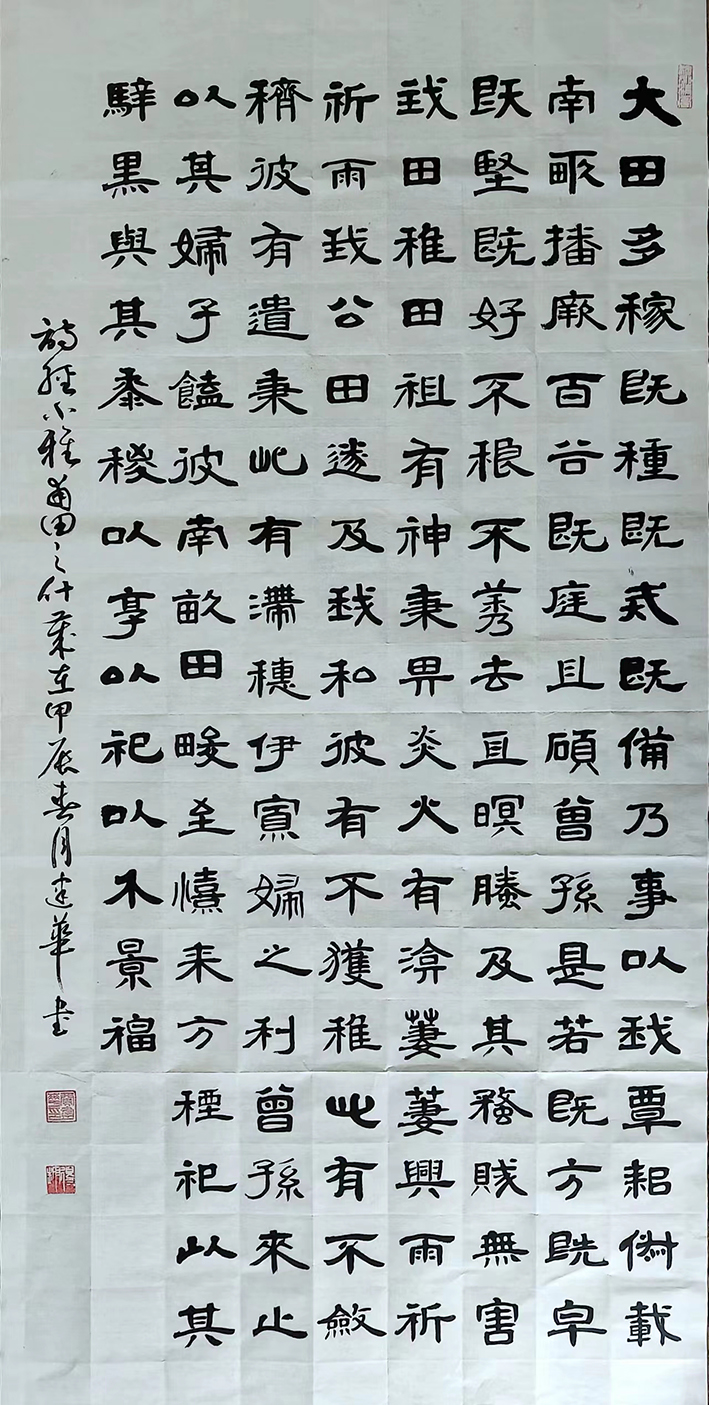 大田多稼既種既戒既備乃事以我覃耜俶載
南畝播厥百谷既庭且碩曾孫是若既方既皁
既堅既好不稂不莠去其螟螣及其蟊賊無害
我田稚田祖有神秉畀炎火有渰萋萋興雨祈
祈雨我公田遂及我私彼有不獲稚此有不斂
穧彼有遺秉此有滯穗伊寡婦之利曾孫來止
以其婦子饁彼南畝田畯至憘来方禋祀以其
騂黑與其黍稷以享以祀以介景福
詩經小雅甫田之什歲在甲辰春月建華書